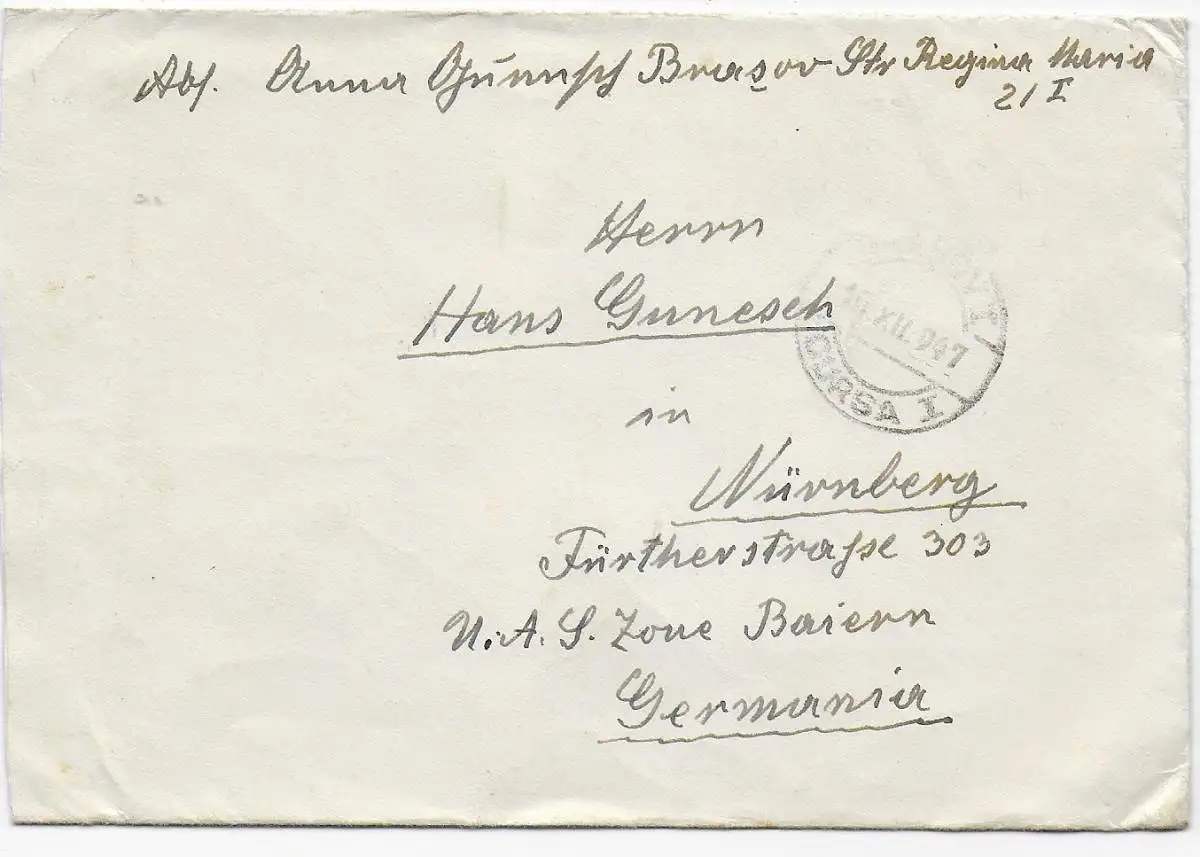 Abs. Anna Gunesch Brașov Str Regina Maria
21 I
Herrn
Hans Gunesch
in
Nürnberg
Fürtherstraße 303
U.A.S. Zone Baiern
Germania
XII. 947
CURSA I